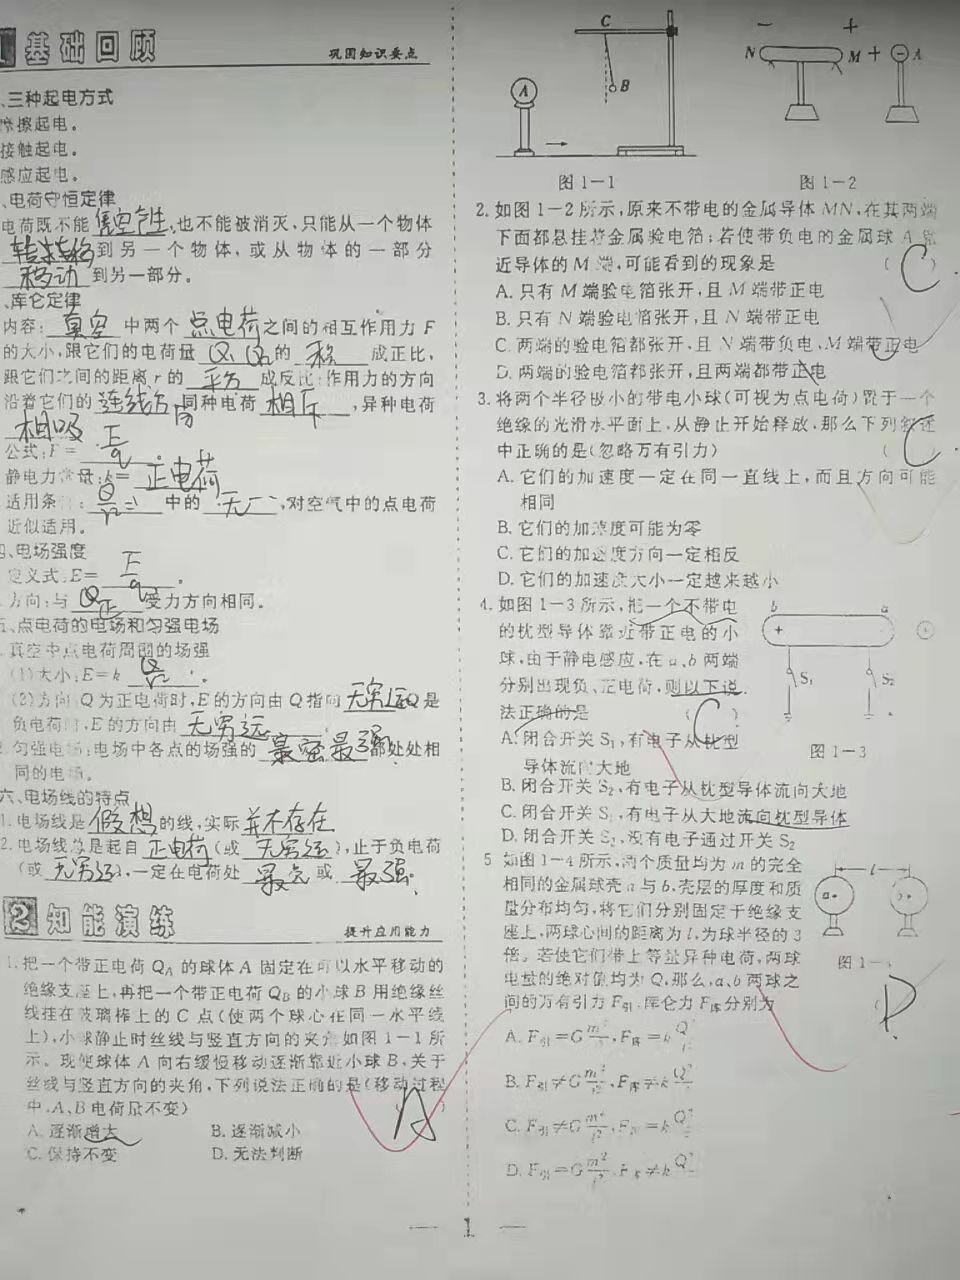 基础回顾 巩固知识要点
、三种起电方式
摩擦起电。
接触起电。
感应起电。
、电荷守恒定律
电荷既不能凭空产生,也不能被消灭,只能从一个物体
转移到另一个物体,或从物体的一部分
移动到另一部分。
、库仑定律
内容:真空中两个点电荷之间的相互作用力F
的大小,跟它们的电荷量Q₁Q₂的积成正比,
跟它们之间的距离r的平方成反比;作用力的方向
沿着它们的连线方向同种电荷相斥,异种电荷
相吸
公式:F=F/q
静电力常量:k=正电荷
适用条件:Q/r²=中的无,对空气中的点电荷
近似适用。
、电场强度
定义式:E=F/q。
方向:与Q正受力方向相同。
五、点电荷的电场和匀强电场
真空中点电荷周围的场强
(1)大小:E=kQ/r²。
(2)方向:Q为正电荷时,E的方向由Q指向无穷远Q是
负电荷时,E的方向由无穷远。
匀强电场:电场中各点的场强的最强最强都处处相
同的电场。
六、电场线的特点
1.电场线是假想的线,实际并不存在
2.电场线总是起自正电荷(或无穷远),止于负电荷
(或无穷远),一定在电荷处最 或最强。
2 知能演练 提升应用能力
1.把一个带正电荷QA的球体A固定在可以水平移动的
绝缘支座上,再把一个带正电荷QB的小球B用绝缘丝
线挂在玻璃棒上的C点(使两个球心在同一水平线
上),小球静止时丝线与竖直方向的夹角如图1-1所
示。现使球体A向右缓慢移动逐渐靠近小球B,关于
丝线与竖直方向的夹角,下列说法正确的是(移动过程
中,A、B电荷量不变) (A)
A.逐渐增大 B.逐渐减小
C.保持不变 D.无法判断
C
A
B
图1-1
- +
N M + - A
图1-2
2.如图1-2所示,原来不带电的金属导体MN,在其两端
下面都悬挂着金属验电箔;若使带负电的金属球A靠
近导体的M端,可能看到的现象是 (C)
A.只有M端验电箔张开,且M端带正电
B.只有N端验电箔张开,且N端带正电
C.两端的验电箔都张开,且N端带负电,M端带正电
D.两端的验电箔都张开,且两端都带正电
3.将两个半径极小的带电小球(可视为点电荷)置于一个
绝缘的光滑水平面上,从静止开始释放,那么下列叙述
中正确的是(忽略万有引力) (C)
A.它们的加速度一定在同一直线上,而且方向可能
相同
B.它们的加速度可能为零
C.它们的加速度方向一定相反
D.它们的加速度大小一定越来越小
4.如图1-3所示,把一个不带电
的枕型导体靠近带正电的小
球,由于静电感应,在a、b两端
分别出现负、正电荷,则以下说
法正确的是 (C)
A.闭合开关S₁,有电子从枕型
导体流向大地
B.闭合开关S₂,有电子从枕型导体流向大地
C.闭合开关S₁,有电子从大地流向枕型导体
D.闭合开关S₂,没有电子通过开关S₂
b a
+ +
S₁ S₂
图1-3
5 如图1-4所示,两个质量均为m的完全
相同的金属球壳a与b,壳层的厚度和质
量分布均匀,将它们分别固定于绝缘支
座上,两球心间的距离为l,为球半径的3
倍。若使它们带上等量异种电荷,两球
电量的绝对值均为Q,那么,a、b两球之
间的万有引力F引、库仑力F库分别为 (D)
l
a b
图1-
A.F引=Gm²/l²,F库=kQ²/l²
B.F引≠Gm²/l²,F库≠kQ²/l²
C.F引≠Gm²/l²,F库=kQ²/l²
D.F引=Gm²/l²,F库≠kQ²/l²
— 1 —